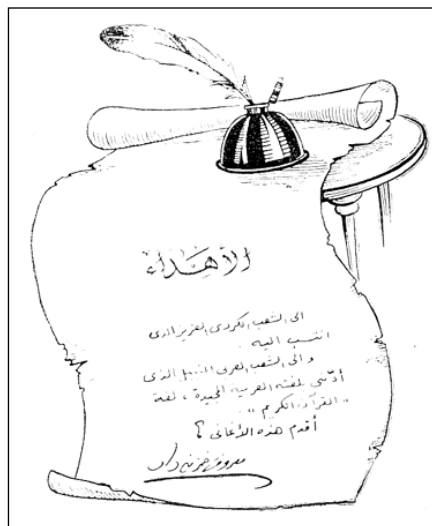 الأهداء
الى الشعب الكردي العزيز الذي
انتسب اليه
والى الشعب العربي النبيل الذي
أدّبني بلغته العربية المجيدة ، لغة
"القرآن الكريم"
أقدم هذه الأغاني ؟
معروف خزنه دار